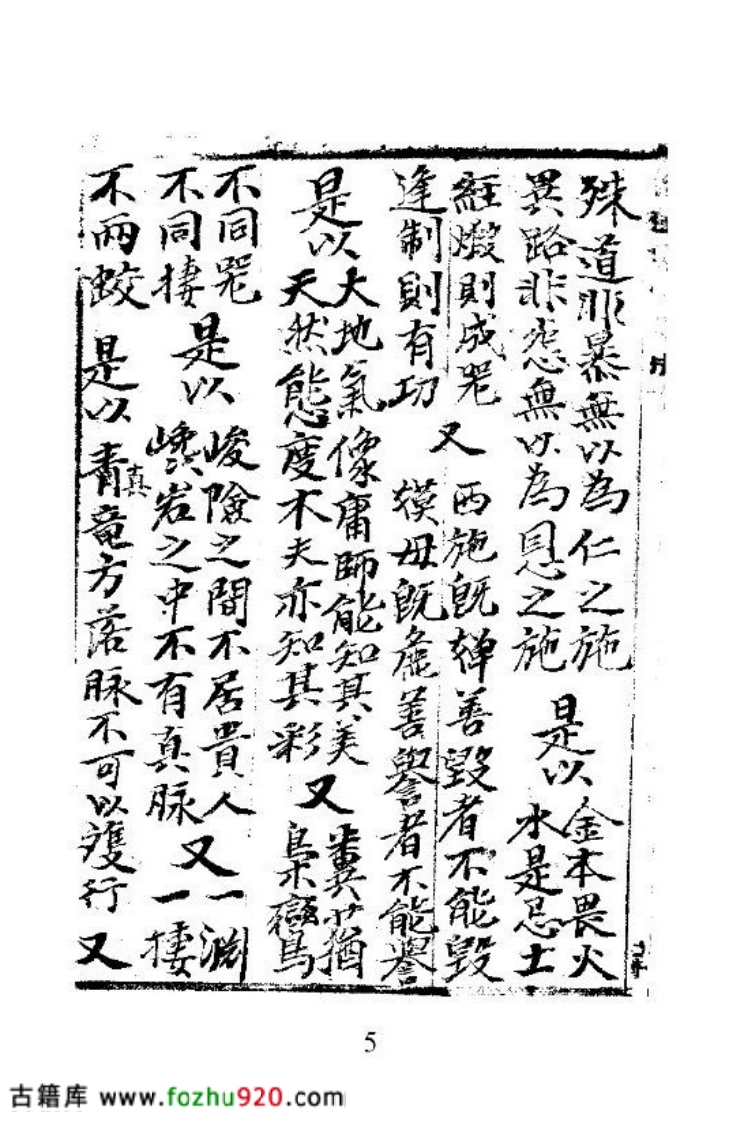 殊道非暴無以為仁之施 是以 金本畏火
異路非怨無以為恩之施 水是忌土
經煅則成器 又 西施既 善毀者不能毀
逢制則有功 嫫母既 善譽者不能譽
是以 大地氣像庸師能知其美 又 糞蕕
天然態度木夫亦知其彩 梟鸞
不同器 是以 峻險之間不居貴人 又 一淵
不同捿 巉岩之中不有真脉 一捿
不兩蛟 是以 青真竜方落脉不可以復行 又
5
古籍库 www.fozhu920.com